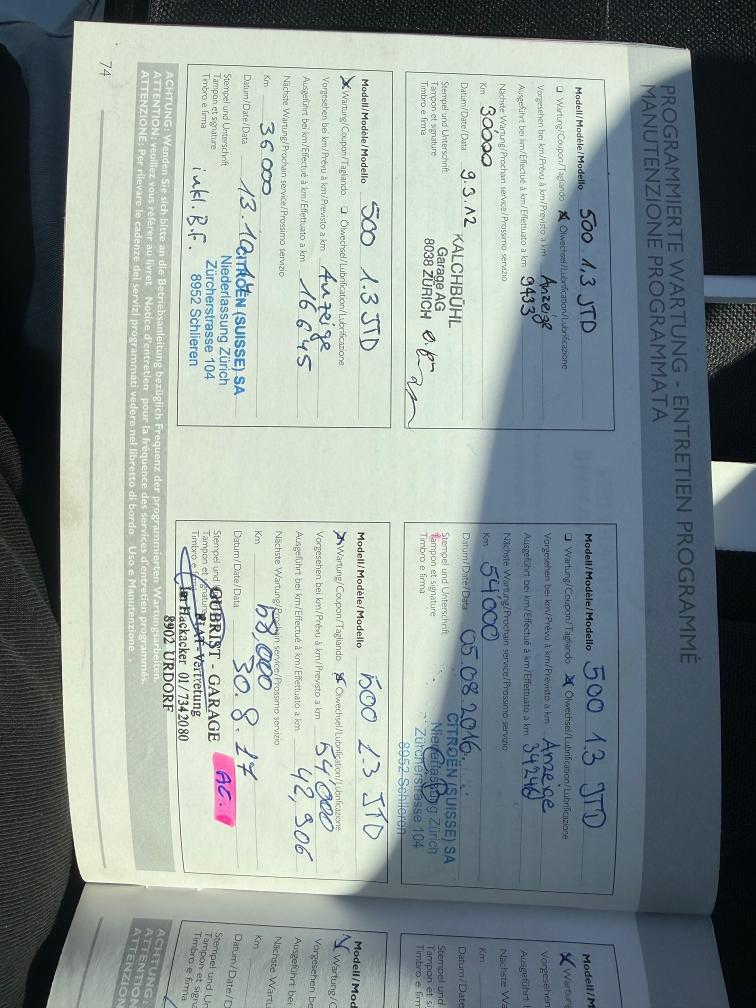 PROGRAMMIERTE WARTUNG - ENTRETIEN PROGRAMMÉ
MANUTENZIONE PROGRAMMATA
Modell/Modèle/Modello 500 1.3 JTD
Wartung/Coupon/Tagliando Ölwechsel/Lubrification/Lubrificazione
Vorgesehen bei km/Prévu à km/Previsto a km Anzeige
Ausgeführt bei km/Effectué à km/Effettuato a km 9433
Nächste Wartung/Prochain service/Prossimo servizio
Km 30000
Datum/Date/Data 9.3.12
Stempel und Unterschrift
Tampon et signature
Timbro e firma
KALCHBÜHL
Garage AG
8038 ZÜRICH
Modell/Modèle/Modello 500 1.3 JTD
Wartung/Coupon/Tagliando Ölwechsel/Lubrification/Lubrificazione
Vorgesehen bei km/Prévu à km/Previsto a km Anzeige
Ausgeführt bei km/Effectué à km/Effettuato a km 16645
Nächste Wartung/Prochain service/Prossimo servizio
Km 36000
Datum/Date/Data 13.10.14
Stempel und Unterschrift
Tampon et signature
Timbro e firma
inkl. B.F.
CITROËN (SUISSE) SA
Niederlassung Zürich
Zürcherstrasse 104
8952 Schlieren
Modell/Modèle/Modello 500 1.3 JTD
Wartung/Coupon/Tagliando Ölwechsel/Lubrification/Lubrificazione
Vorgesehen bei km/Prévu à km/Previsto a km Anzeige
Ausgeführt bei km/Effectué à km/Effettuato a km
Nächste Wartung/Prochain service/Prossimo servizio
Km 54000
Datum/Date/Data 05.08.2016
Stempel und Unterschrift
Tampon et signature
Timbro e firma
CITROËN (SUISSE) SA
Niederlassung Zürich
Zürcherstrasse 104
8952 Schlieren
Modell/Modèle/Modello 500 1.3 JTD
Wartung/Coupon/Tagliando Ölwechsel/Lubrification/Lubrificazione
Vorgesehen bei km/Prévu à km/Previsto a km 54000
Ausgeführt bei km/Effectué à km/Effettuato a km 42,906
Nächste Wartung/Prochain service/Prossimo servizio
Km 68,000
Datum/Date/Data 30.8.17
Stempel und
Tampon et signature
Timbro e
GUBRIST - GARAGE
FIAT-Vertretung
Hackacker 01/7342080
8902 URDORF
AG.
ACHTUNG: Wenden Sie sich bitte an die Betriebsanleitung bezüglich Frequenz der programmierten Wartungsarbeiten.
ATTENTION: veuillez vous référer au livret Notice d'entretien pour la fréquence des services d'entretien programmés.
ATTENZIONE: Per rilevare le cadenze dei servizi programmati vedere nel libretto di bordo Uso e Manutenzione .
74
Modell/Mod
Wartu
Vorgesehen
Ausgeführt be
Nächste Wa
Km
Datum/Date/
Stempel und
Tampon et si
Timbro e fir
Modell/Mod
Wartung/C
Vorgesehen bei
Ausgeführt bei
Nächste Wartu
Km
Datum/Date/D
Stempel und Un
Tampon et sign
Timbro e firma
ACHTUNG:
ATTENTION
ATTENZION